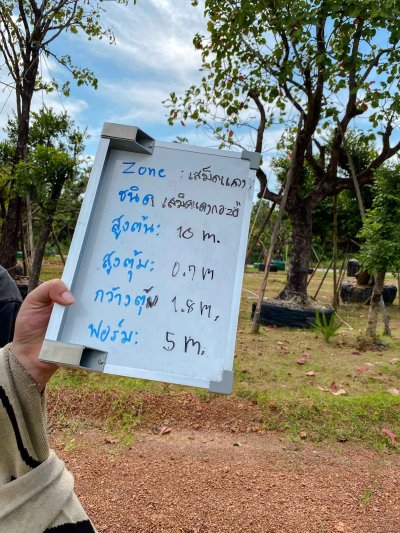 Zone : เสม็ดแดง
ชนิด เสม็ดแดงกอ
สูงต้น: 10 m.
สูงตุ้ม: 0.7 m
กว้างตุ้ม 1.8 m.
ฟอร์ม: 5 m.